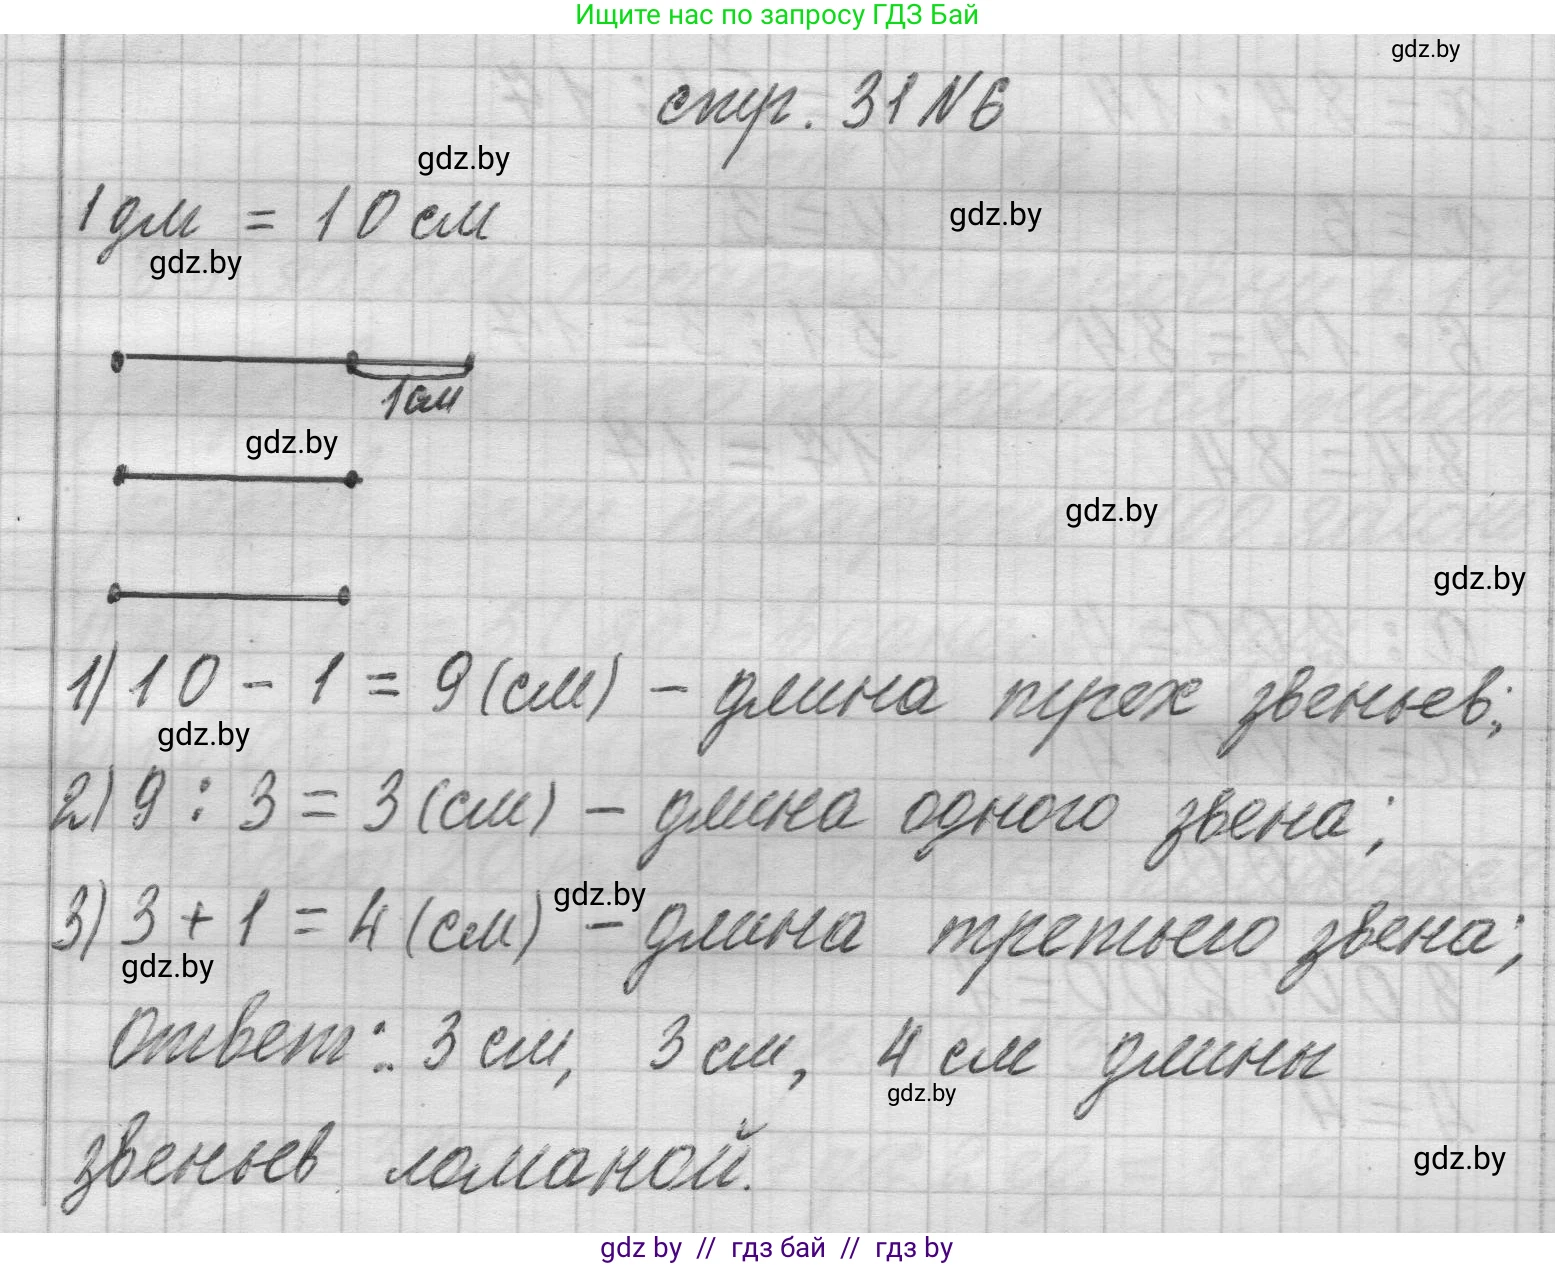 Ищите нас по запросу ГДЗ Бай
gdz.by
стр. 31 №6
gdz.by
1 дм = 10 см
gdz.by
gdz.by
1см
gdz.by
gdz.by
gdz.by
1) 10 - 1 = 9 (см) - длина трех звеньев;
gdz.by
2) 9 : 3 = 3 (см) - длина одного звена;
gdz.by
3) 3 + 1 = 4 (см) - длина третьего звена;
gdz.by
Ответ: 3 см, 3 см, 4 см длины
gdz.by
звеньев ломаной.
gdz.by
gdz by // гдз бай // гдз by